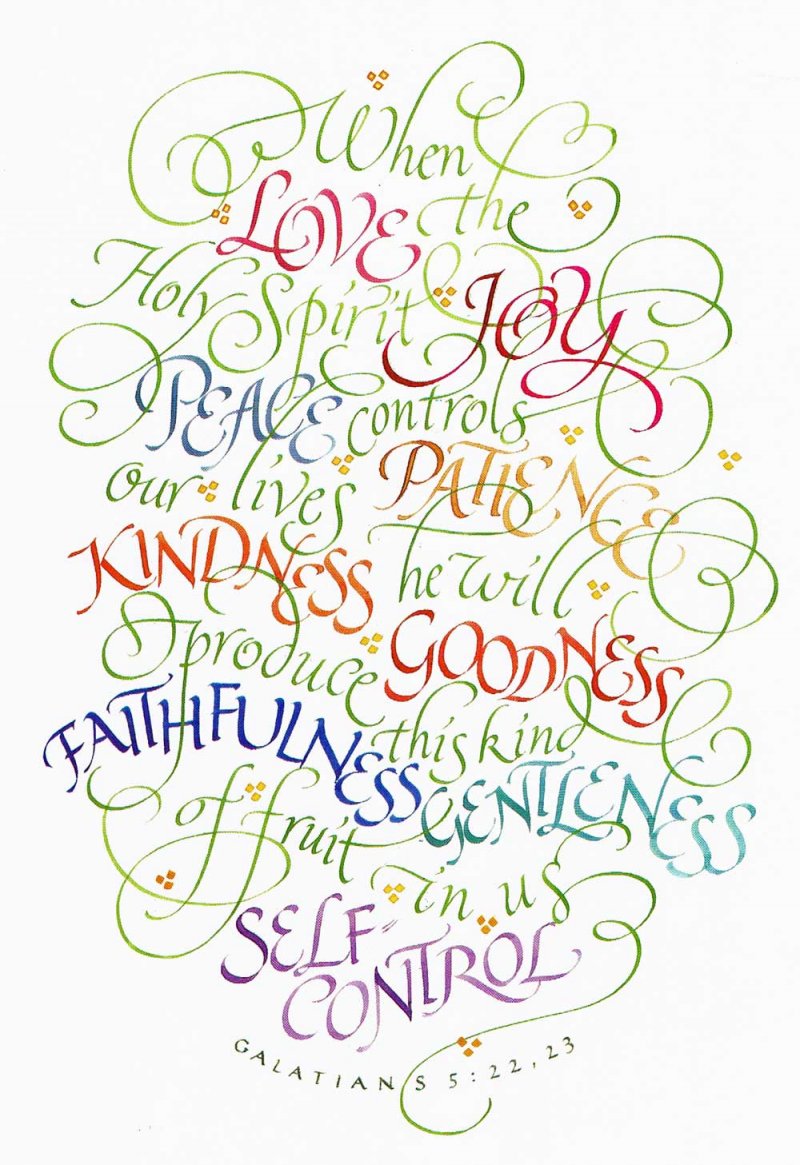 When
LOVE the
Holy Spirit JOY
PEACE controls
our lives PATIENCE
KINDNESS he will
produce GOODNESS
FAITHFULNESS this kind
of fruit GENTLENESS
in us
SELF-
CONTROL
GALATIANS 5:22,23